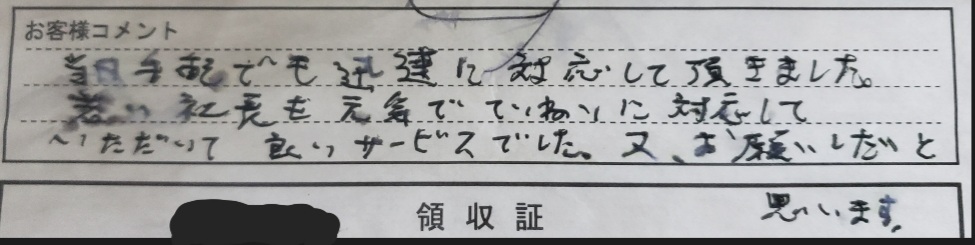 お客様コメント
当日予約でも迅速に対応して頂きました。
若い社長も元気でていねいに対応して
いただいて 良いサービスでした。又、お願いしたいと
思います。
領収証